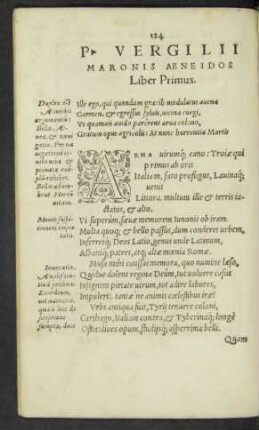 124
P. VERGILII
MARONIS AENEIDOS
Liber Primus.
Ille ego, qui quondam gracili modulatus auena
Carmen, & egressus syluis, uicina coegi,
Vt quamuis auido parerent arua colono,
Gratum opus agricolis: At nunc horrentia Martis
ARMA uirumq; cano: Troiæ qui
primus ab oris
Italiam, fato profugus, Lauinaq;
uenit
Littora. multum ille & terris ia-
ctatus, & alto,
Vi superûm, sæuæ memorem Iunonis ob iram.
Multa quoq; & bello passus, dum conderet urbem,
Inferretq; Deos Latio, genus unde Latinum,
Albaniq; patres, atq; altæ mœnia Romæ.
Musa mihi caussas memora, quo numine læso,
Quidue dolens regina Deûm, tot uoluere casus
Insignem pietate uirum, tot adire labores,
Impulerit. tantæ ne animis cælestibus iræ?
Vrbs antiqua fuit, Tyrij tenuere coloni,
Carthago, Italiam contra, & Tyberinaq; longè
Ostia: diues opum, studijsq; asperrima belli.
Quam